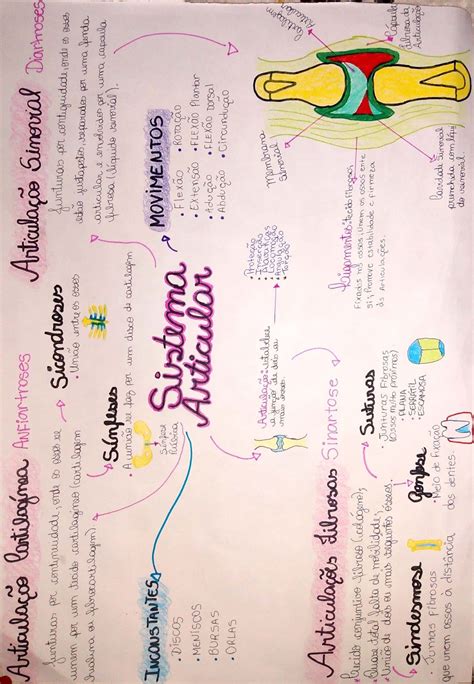 Sistema
Articular
Articulação Cartilagínea ANFIARTROSES
junturas por continuidade, onde os ossos se
unem por um tecido cartilagíneo (cartilagem
hialina ou fibrocartilagem)
Sínfises
• A união se faz por um disco de cartilagem
Sínfise
Púbica
Sicondroses
• União entre os ossos
Articulação Sinovial Diartroses
junturas por contiguidade, onde os ossos
estão justapostos, separados por uma fenda
articular e envolvidos por uma cápsula
fibrosa (líquido sinovial).
MOVIMENTOS
• Flexão
• Extensão
• Adução
• Abdução
• Rotação
• FLEXÃO Plantar
• FLEXÃO Dorsal
• Circundução
Cartilagem
Articular
Cápsula
fibrosa da
Articulação
Membrana
sinovial
Cavidade Sinovial
Ligamentos: tecido fibroso,
Fixados nos ossos, unem os ossos entre
si; Promove estabilidade e firmeza
das Articulações.
Articulação:
a junção de dois ou
mais ossos
INCONSTANTES
• DISCOS
• MENISCOS
• BURSAS
• ORLAS
Articulações Fibrosas Sinartose
tecido conjuntivo fibroso (colágeno);
Quase total falta de mobilidade;
União de dois ou mais ossos.
Suturas
• Junturas Fibrosas
(ossos muito próximos)
• PLANA
• SERRÁTIL
• ESCAMOSA
Gonfose
• Meio de fixação
dos dentes.
Sindesmose
• Juntas Fibrosas
que unem ossos a distância